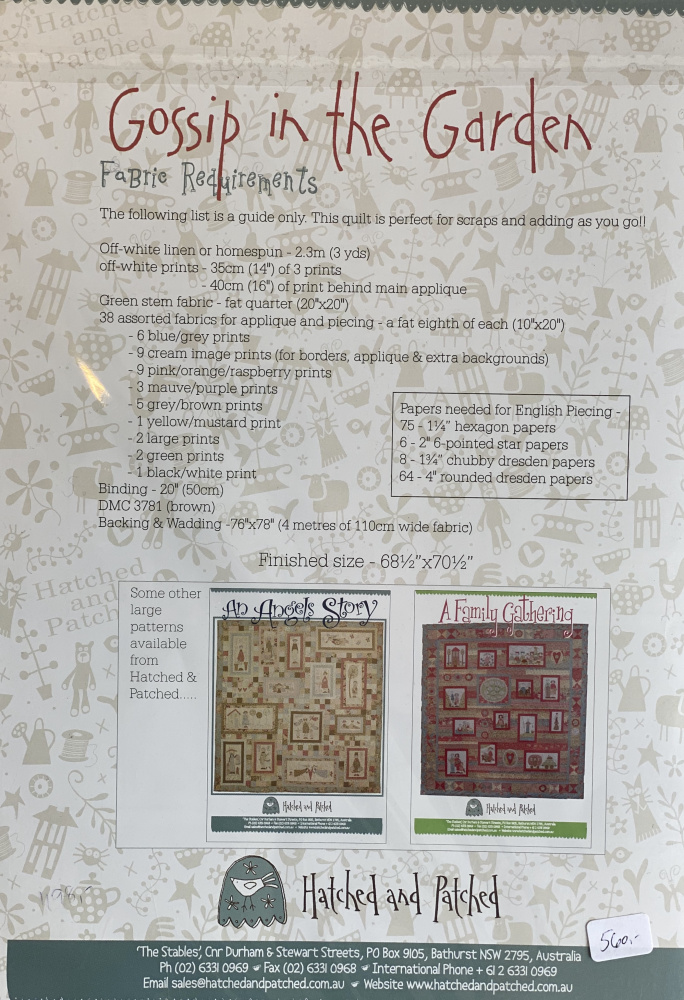 Hatched
and
Patched
Gossip in the Garden
Fabric Requirements
The following list is a guide only. This quilt is perfect for scraps and adding as you go!!
Off-white linen or homespun - 2.3m (3 yds)
off-white prints - 35cm (14") of 3 prints
- 40cm (16") of print behind main applique
Green stem fabric - fat quarter (20"x20")
38 assorted fabrics for applique and piecing - a fat eighth of each (10"x20")
- 6 blue/grey prints
- 9 cream image prints (for borders, applique & extra backgrounds)
- 9 pink/orange/raspberry prints
- 3 mauve/purple prints
- 5 grey/brown prints
- 1 yellow/mustard print
- 2 large prints
- 2 green prints
- 1 black/white print
Binding - 20" (50cm)
DMC 3781 (brown)
Backing & Wadding -76"x78" (4 metres of 110cm wide fabric)
Papers needed for English Piecing -
75 - 1¼" hexagon papers
6 - 2" 6-pointed star papers
8 - 1¾" chubby dresden papers
64 - 4" rounded dresden papers
Finished size - 68½"x70½"
Hatched
and
Patched
Some other
large
patterns
available
from
Hatched &
Patched.....
An Angels Story
Hatched and Patched
A Family Gathering
Hatched and Patched
Hatched and Patched
560.-
'The Stables', Cnr Durham & Stewart Streets, PO Box 9105, Bathurst NSW 2795, Australia
Ph (02) 6331 0969 Fax (02) 6331 0968 International Phone + 61 2 6331 0969
Email sales@hatchedandpatched.com.au Website www.hatchedandpatched.com.au